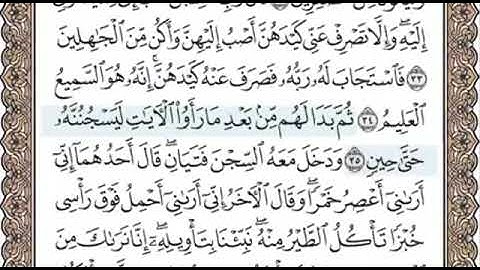 إِلَيْهِ ۖ وَإِلَّا تَصْرِفْ عَنِّى كَيْدَهُنَّ أَصْبُ إِلَيْهِنَّ وَأَكُن مِّنَ ٱلْجَٰهِلِينَ
٣٣ فَٱسْتَجَابَ لَهُۥ رَبُّهُۥ فَصَرَفَ عَنْهُ كَيْدَهُنَّ ۚ إِنَّهُۥ هُوَ ٱلسَّمِيعُ
ٱلْعَلِيمُ ٣٤ ثُمَّ بَدَا لَهُم مِّنۢ بَعْدِ مَا رَأَوُا۟ ٱلْءَايَٰتِ لَيَسْجُنُنَّهُۥ
حَتَّىٰ حِينٍ ٣٥ وَدَخَلَ مَعَهُ ٱلسِّجْنَ فَتَيَانِ ۖ قَالَ أَحَدُهُمَآ إِنِّىٓ
أَرَىٰنِىٓ أَعْصِرُ خَمْرًا ۖ وَقَالَ ٱلْءَاخَرُ إِنِّىٓ أَرَىٰنِىٓ أَحْمِلُ فَوْقَ رَأْسِى
خُبْزًا تَأْكُلُ ٱلطَّيْرُ مِنْهُ ۖ نَبِّئْنَا بِتَأْوِيلِهِۦٓ ۖ إِنَّا نَرَىٰكَ مِنَ